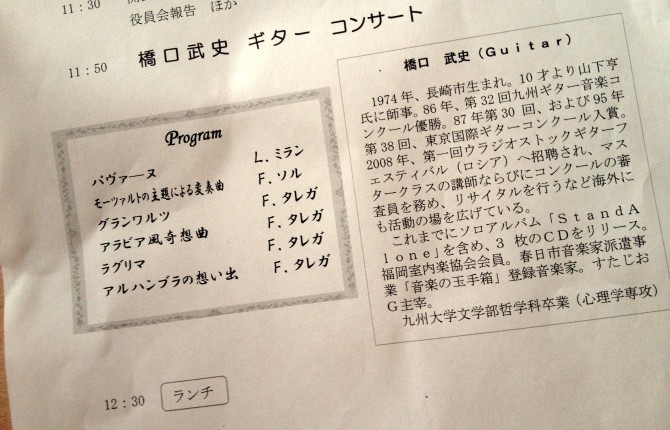 11：30
役員会報告　ほか
11：50　橋口武史　ギター　コンサート
Program
パヴァーヌ　L. ミラン
モーツァルトの主題による変奏曲　F. ソル
グランワルツ　F. タレガ
アラビア風奇想曲　F. タレガ
ラグリマ　F. タレガ
アルハンブラの想い出　F. タレガ
橋口　武史（Guitar）
1974年、長崎市生まれ。10才より山下亨
氏に師事。86年、第32回九州ギター音楽コ
ンクール優勝。87年第30回、および95年
第38回、東京国際ギターコンクール入賞。
2008年、第一回ウラジオストックギターフ
ェスティバル（ロシア）へ招聘され、マス
タークラスの講師ならびにコンクールの審
査員を務め、リサイタルを行うなど海外に
も活動の場を広げている。
これまでにソロアルバム「StandA
lone」を含め、3枚のCDをリリース。
福岡室内楽協会会員。春日市音楽家派遣事
業「音楽の玉手箱」登録音楽家。すたじお
G主宰。
九州大学文学部哲学科卒業（心理学専攻）
12：30　ランチ